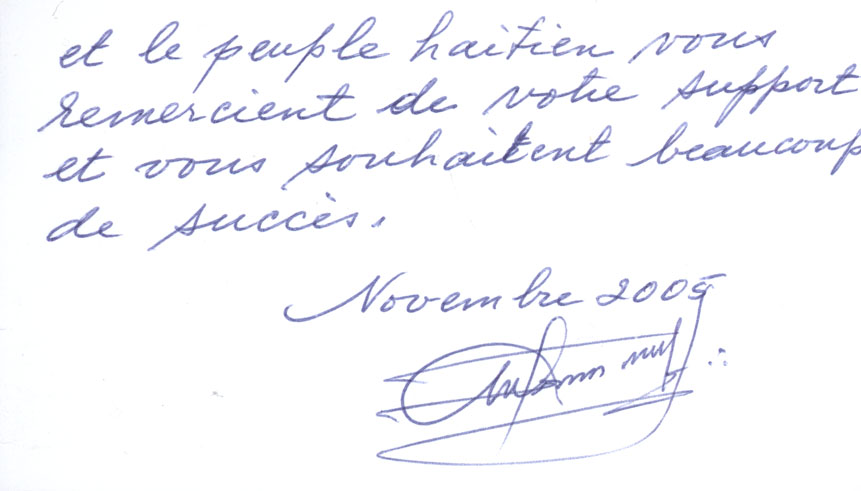 et le peuple haitien vous
remercient de votre support
et vous souhaitent beaucoup
de succès.
Novembre 2005